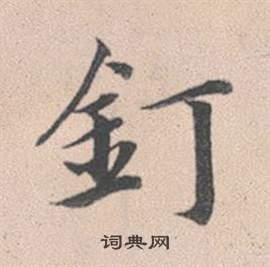 釘
词典网